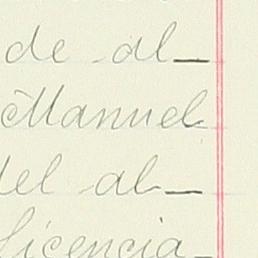 de al_
Manuel
del al_
licencia_